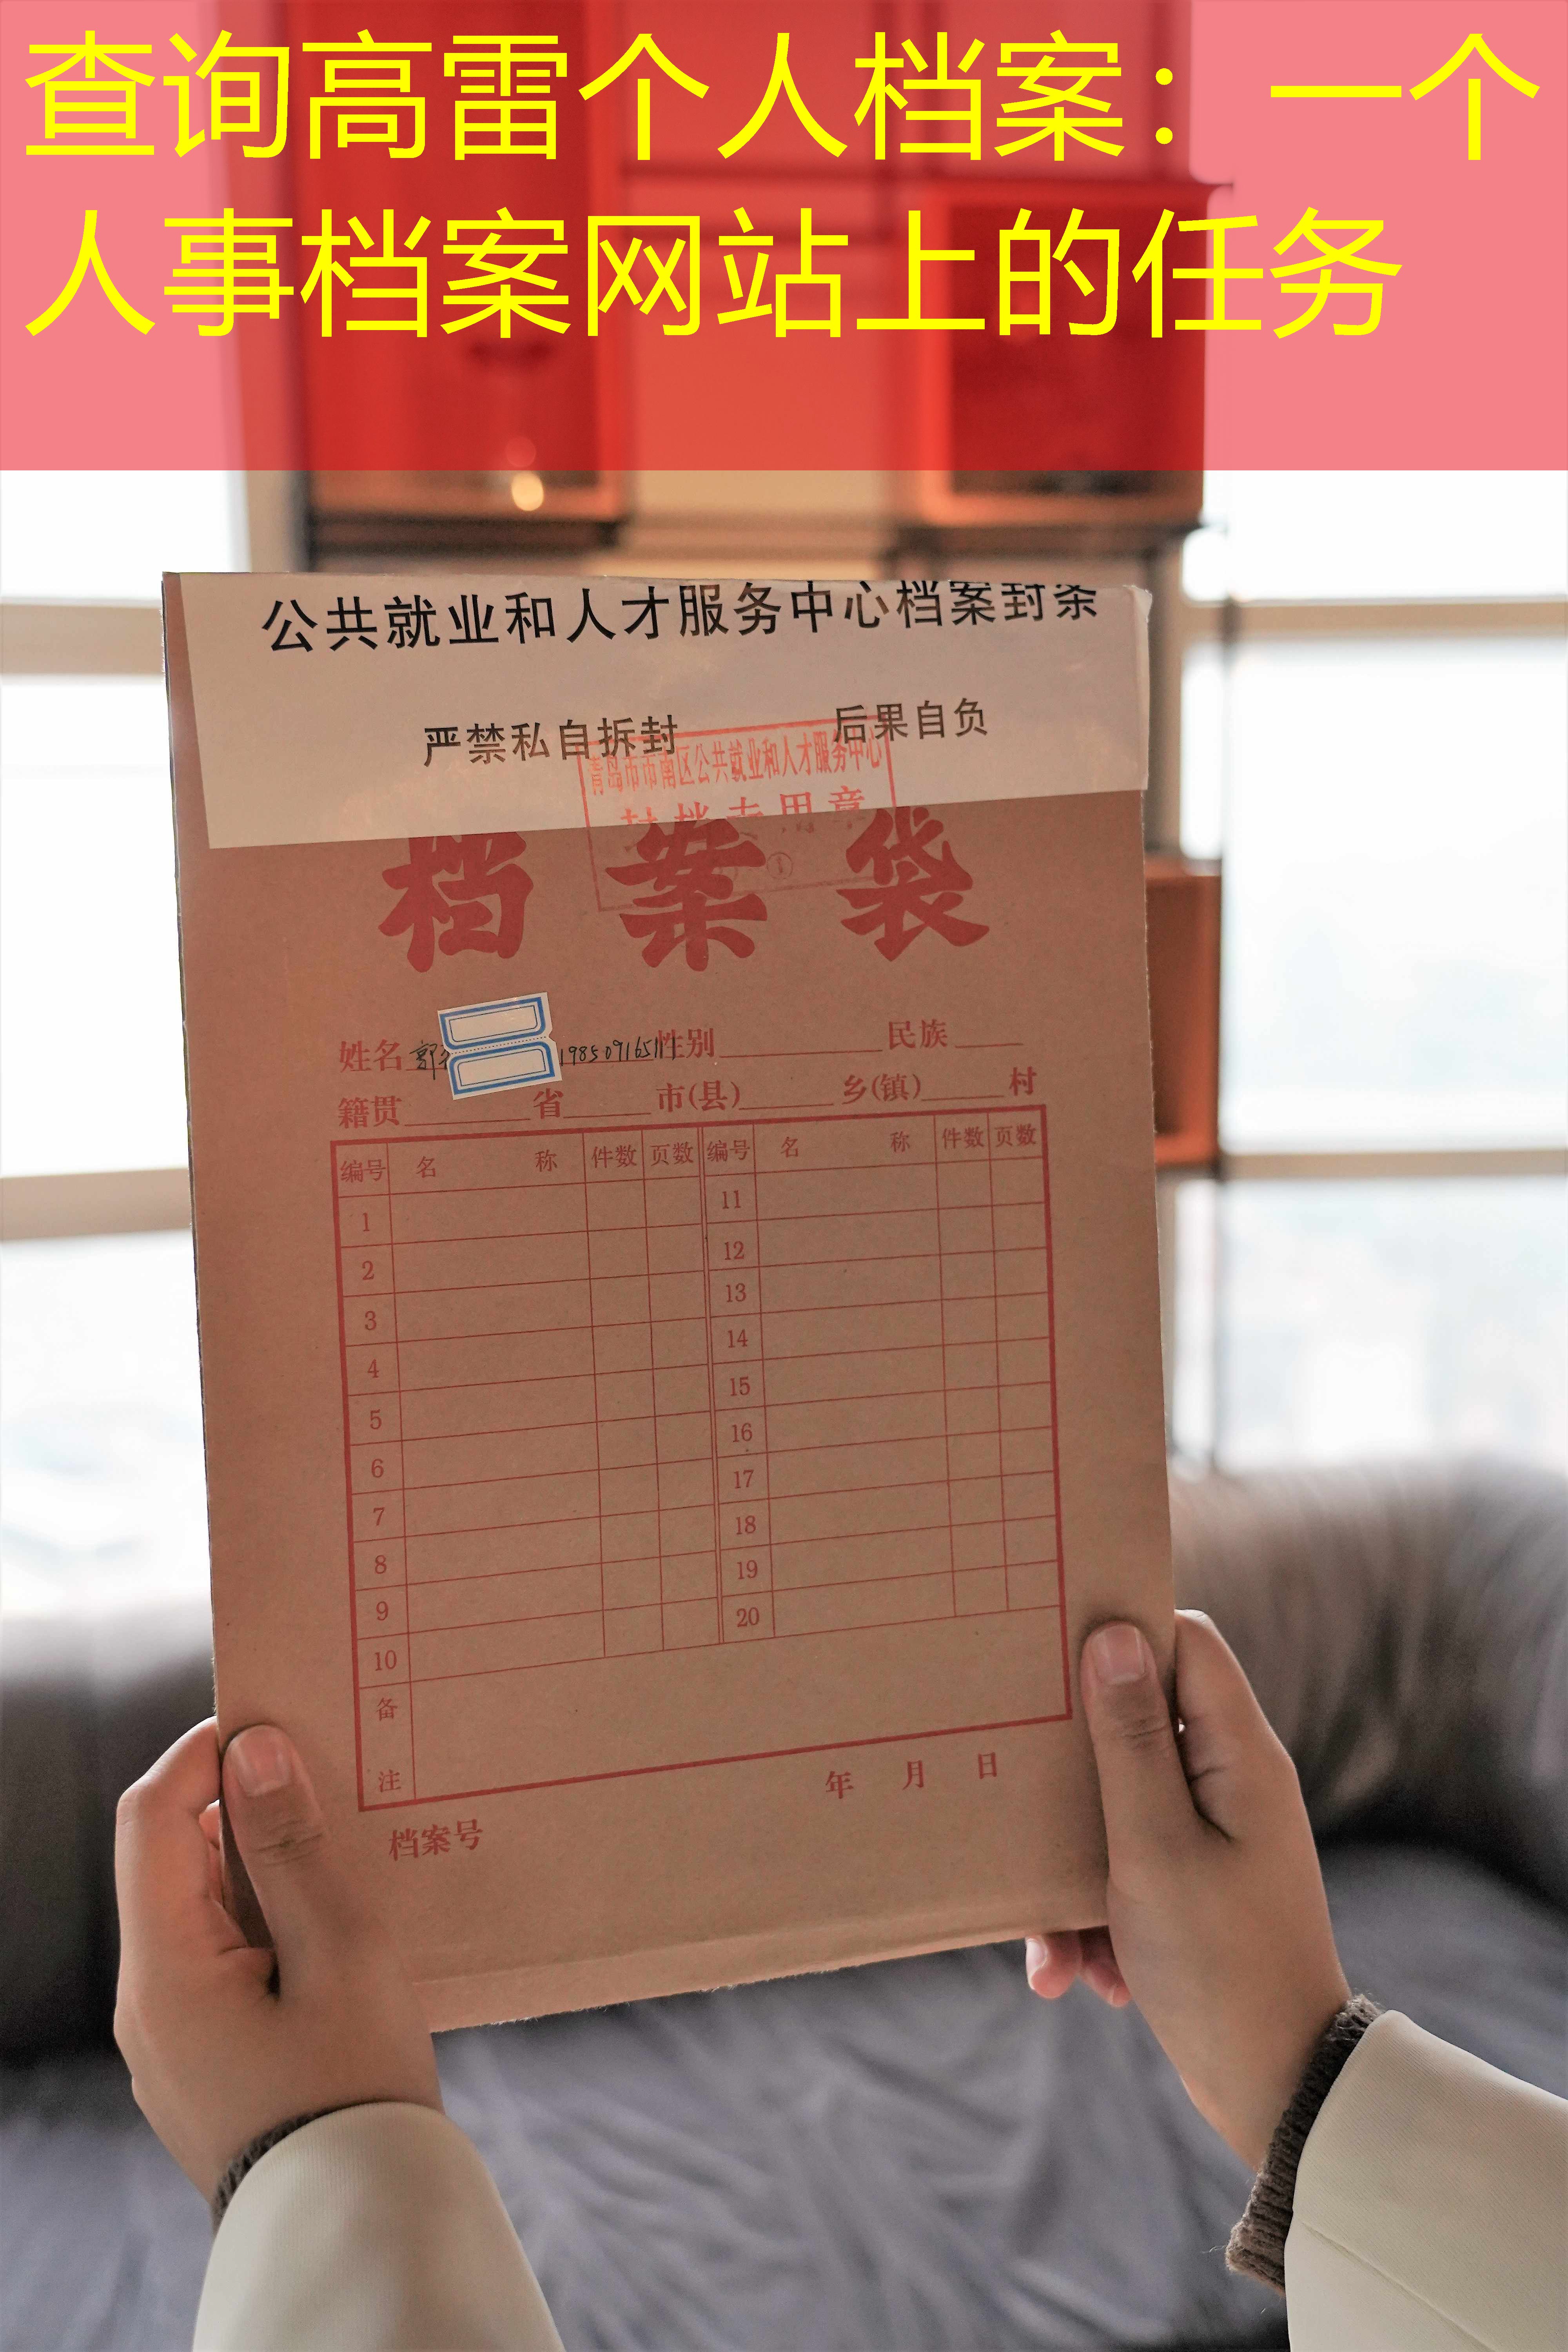 查询高雷个人档案：一个
人事档案网站上的任务
公共就业和人才服务中心档案封条
严禁私自拆封 后果自负
青岛市市南区公共就业和人才服务中心
封档专用章
档案袋
姓名 郭 19850916511 性别 民族
籍贯 省 市(县) 乡(镇) 村
编号 名 称 件数 页数 编号 名 称 件数 页数
1 11
2 12
3 13
4 14
5 15
6 16
7 17
8 18
9 19
10 20
备
注
年 月 日
档案号